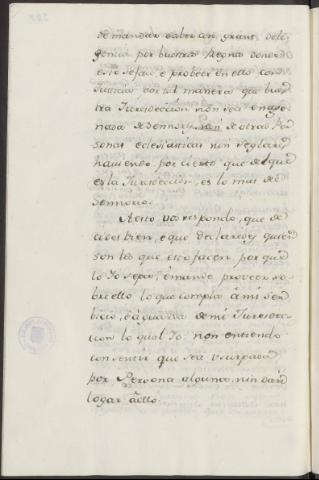 demandar saber con grant dili
gencia por buestros Regnos donde
esto se face, é probeer en ello con
Justicia por tal manera que bues
tra Jurisdiccion non sea enage
nada de Sennores nin de otras Per
sonas eclesiasticas nin seglares
haviendo por cierto que do que
es la Jurisdiccion, es lo mas del
Sennorio.
A esto vos respondo, que de
cides bien, é que declaredes quien
son los que esto facen por que
lo Yo sepa, é mande proveer so
bre ello lo que cumpla á mi Ser
bicio, é á guarda de mi Jurisdic
cion lo qual Yo non entiendo
consentir que sea usurpada
por Persona alguna, nin daré
logar á ello.